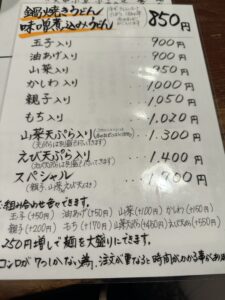 鍋焼きうどん
味噌煮込みうどん 850円
玉子入り 900円
油あげ入り 900円
山菜入り 950円
かしわ入り 1,000円
親子入り 1,050円
もち入り 1,020円
山菜天ぷら入り 1,300円
(天ぷらは別盛で付いてきます)
えび天ぷら入り 1,400円
(天ぷらは別盛で付いてきます)
スペシャル 1,700円
(親子、山菜えび天入り)
組み合わせもできます。
玉子(+50円) 油あげ(+50円) 山菜(+100円) かしわ(+150円)
親子(+200円) もち(+170円) 山菜天ぷら(+450円) えび天ぷら(+550円)
250円増しで麺を大盛りにできます。
コンロが7つしかない為、注文が重なると時間がかかる事があ